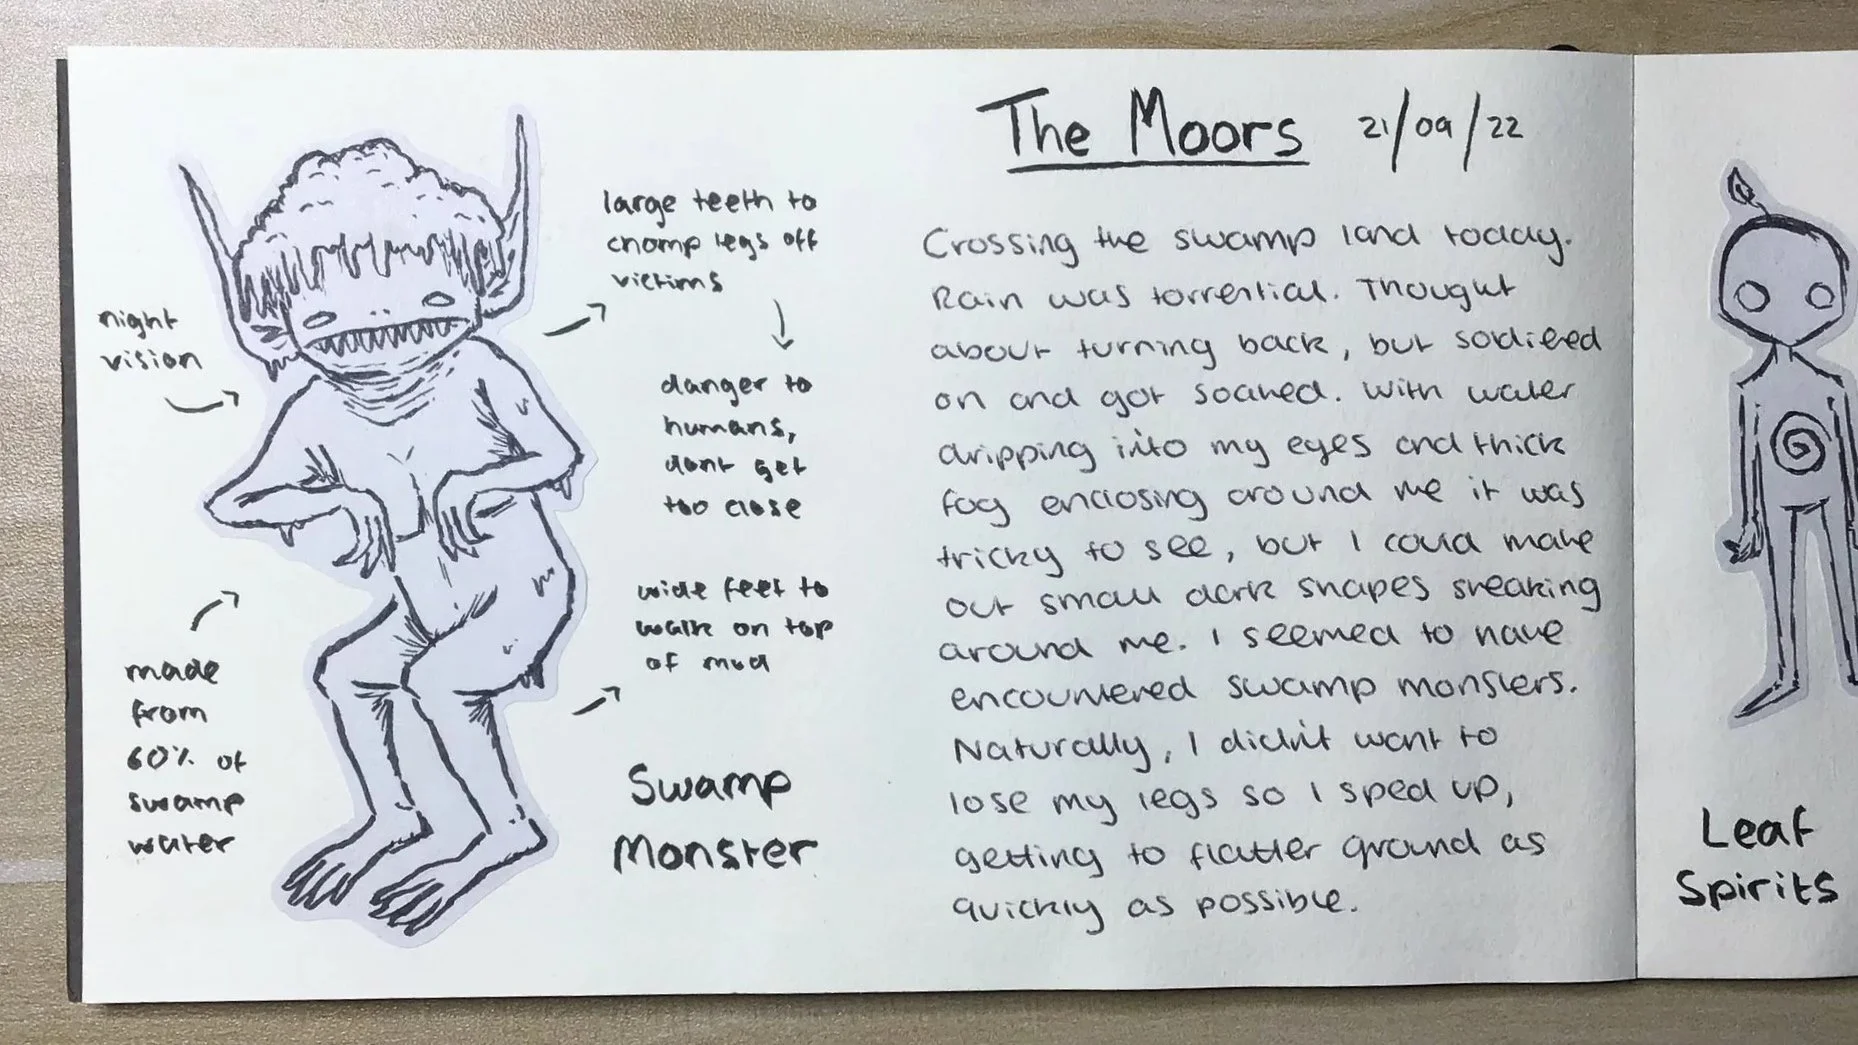 night
vision
made
from
60% of
swamp
water
large teeth to
chomp legs off
victims
danger to
humans,
dont get
too close
wide feet to
walk on top
of mud
Swamp
Monster
The Moors 21/09/22
Crossing the swamp land today.
Rain was torrential. Thought
about turning back, but soldiered
on and got soaked. With water
dripping into my eyes and thick
fog enclosing around me it was
tricky to see, but I could make
out small dark shapes sneaking
around me. I seemed to have
encountered swamp monsters.
Naturally, I didn't want to
lose my legs so I sped up,
getting to flatter ground as
quickly as possible.
Leaf
Spirits